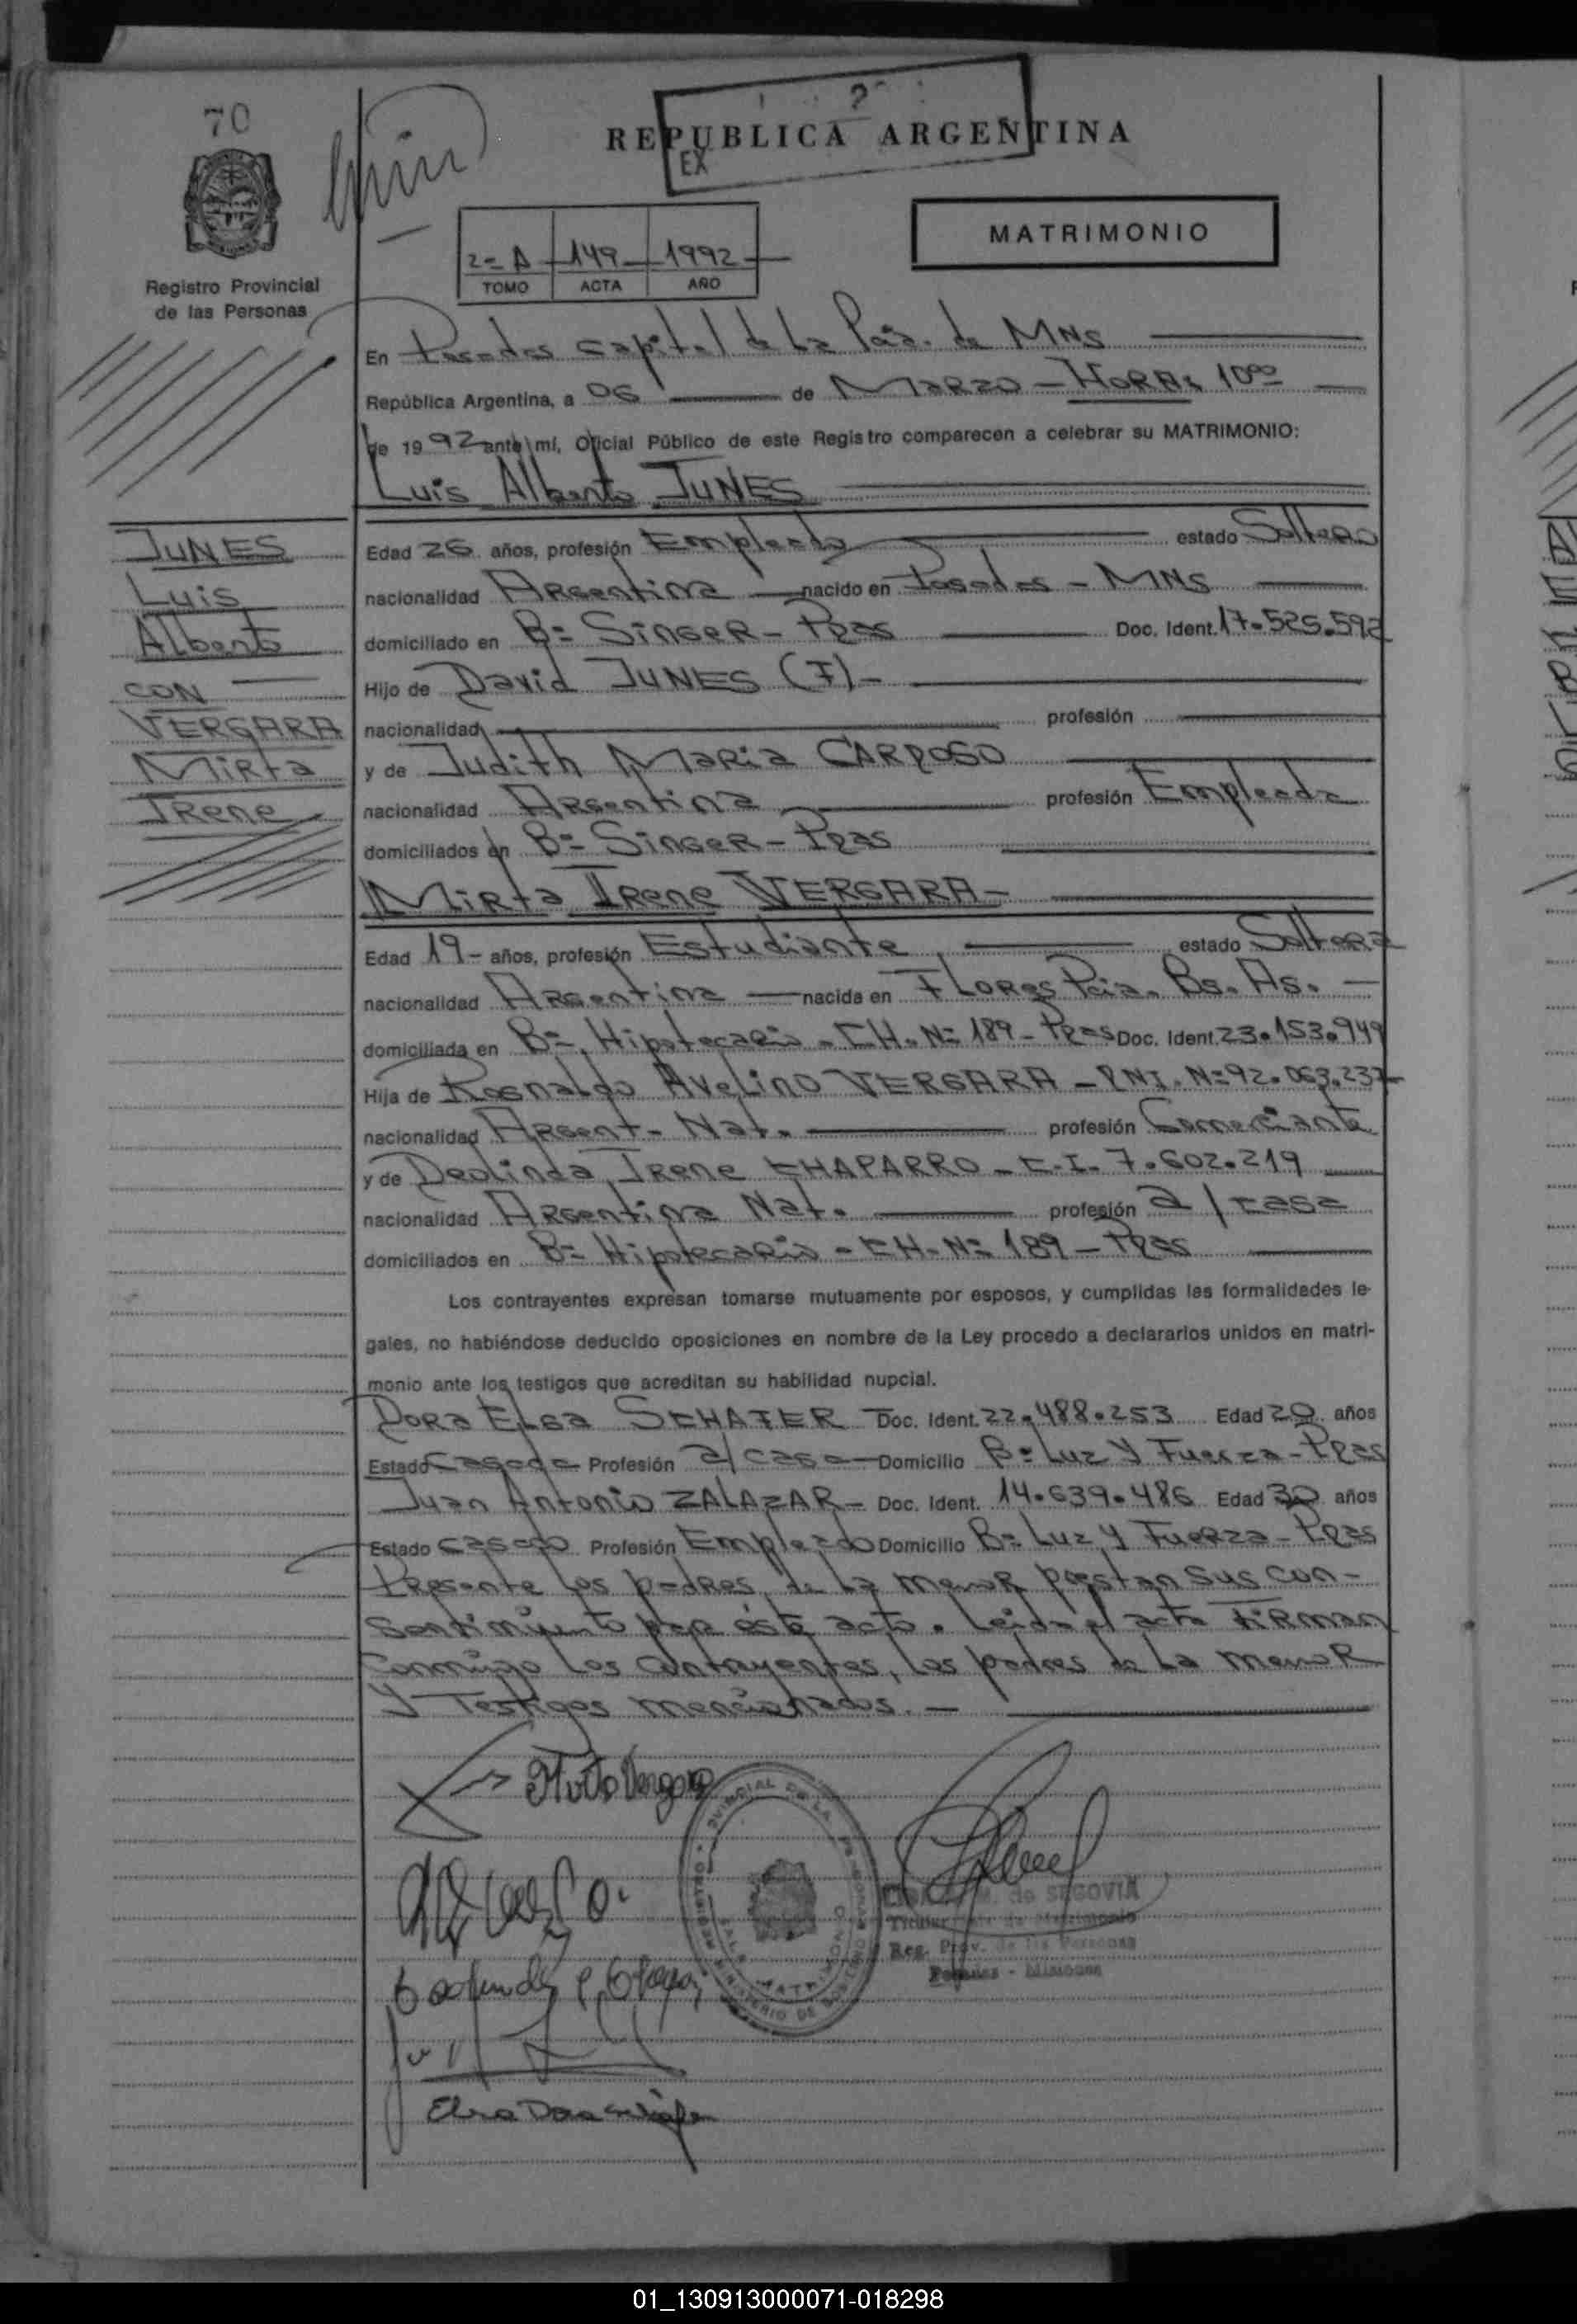 70
REPUBLICA ARGENTINA
EX
MATRIMONIO
2= A 149 1992
TOMO ACTA AÑO
Registro Provincial
de las Personas
En Posadas Capital de La Pcia. de MNS
República Argentina, a 06 de MARZO - HORAs 10oo
de 1992 ante mí, Oficial Público de este Registro comparecen a celebrar su MATRIMONIO:
Luis Alberto JUNES
JUNES
Luis
Alberto
CON
VERGARA
Mirta
Irene
Edad 26 años, profesión Empleado estado Soltero
nacionalidad Argentina nacido en Posadas - MNS
domiciliado en B= Singer - Pdas Doc. Ident. 17.525.592
Hijo de David JUNES (F)-
nacionalidad profesión
y de Judith Maria CARDOSO
nacionalidad Argentina profesión Empleada
domiciliados en B= Singer - Pdas
Mirta Irene VERGARA-
Edad 19- años, profesión Estudiante estado Soltera
nacionalidad Argentina nacida en Flores Pcia. Bs. As.
domiciliada en B= Hipotecario - CH. N= 189 - Pdas Doc. Ident. 23.153.949
Hija de Avelino VERGARA - DNI. N= 92.063.237
nacionalidad Argent. Nat. profesión Comerciante
y de Deolinda Irene CHAPARRO - C.I. 7.602.219
nacionalidad Argentina Nat. profesión a/casa
domiciliados en B= Hipotecario - CH- N= 189 - Pdas
Los contrayentes expresan tomarse mutuamente por esposos, y cumplidas las formalidades le-
gales, no habiéndose deducido oposiciones en nombre de la Ley procedo a declararlos unidos en matri-
monio ante los testigos que acreditan su habilidad nupcial.
Dora Elsa SCHAFER Doc. Ident. 22.488.253 Edad 20 años
Estado Casada Profesión a/casa Domicilio B= Luz y Fuerza - Pdas
Juan Antonio ZALAZAR - Doc. Ident. 14.639.486 Edad 30 años
Estado casado Profesión Empleado Domicilio B= Luz y Fuerza - Pdas
Presente los padres de La menor prestan sus con-
sentimiento para éste acto. Leida el acta FIRMAN
conmigo los contrayentes, los padres de La menor
Y Testigos mencionados. -
Mirta Vergara
M. de SEGOVIA
Titular de Matrimonio
Reg. Prov. de las Personas
Posadas - Misiones
01_130913000071-018298